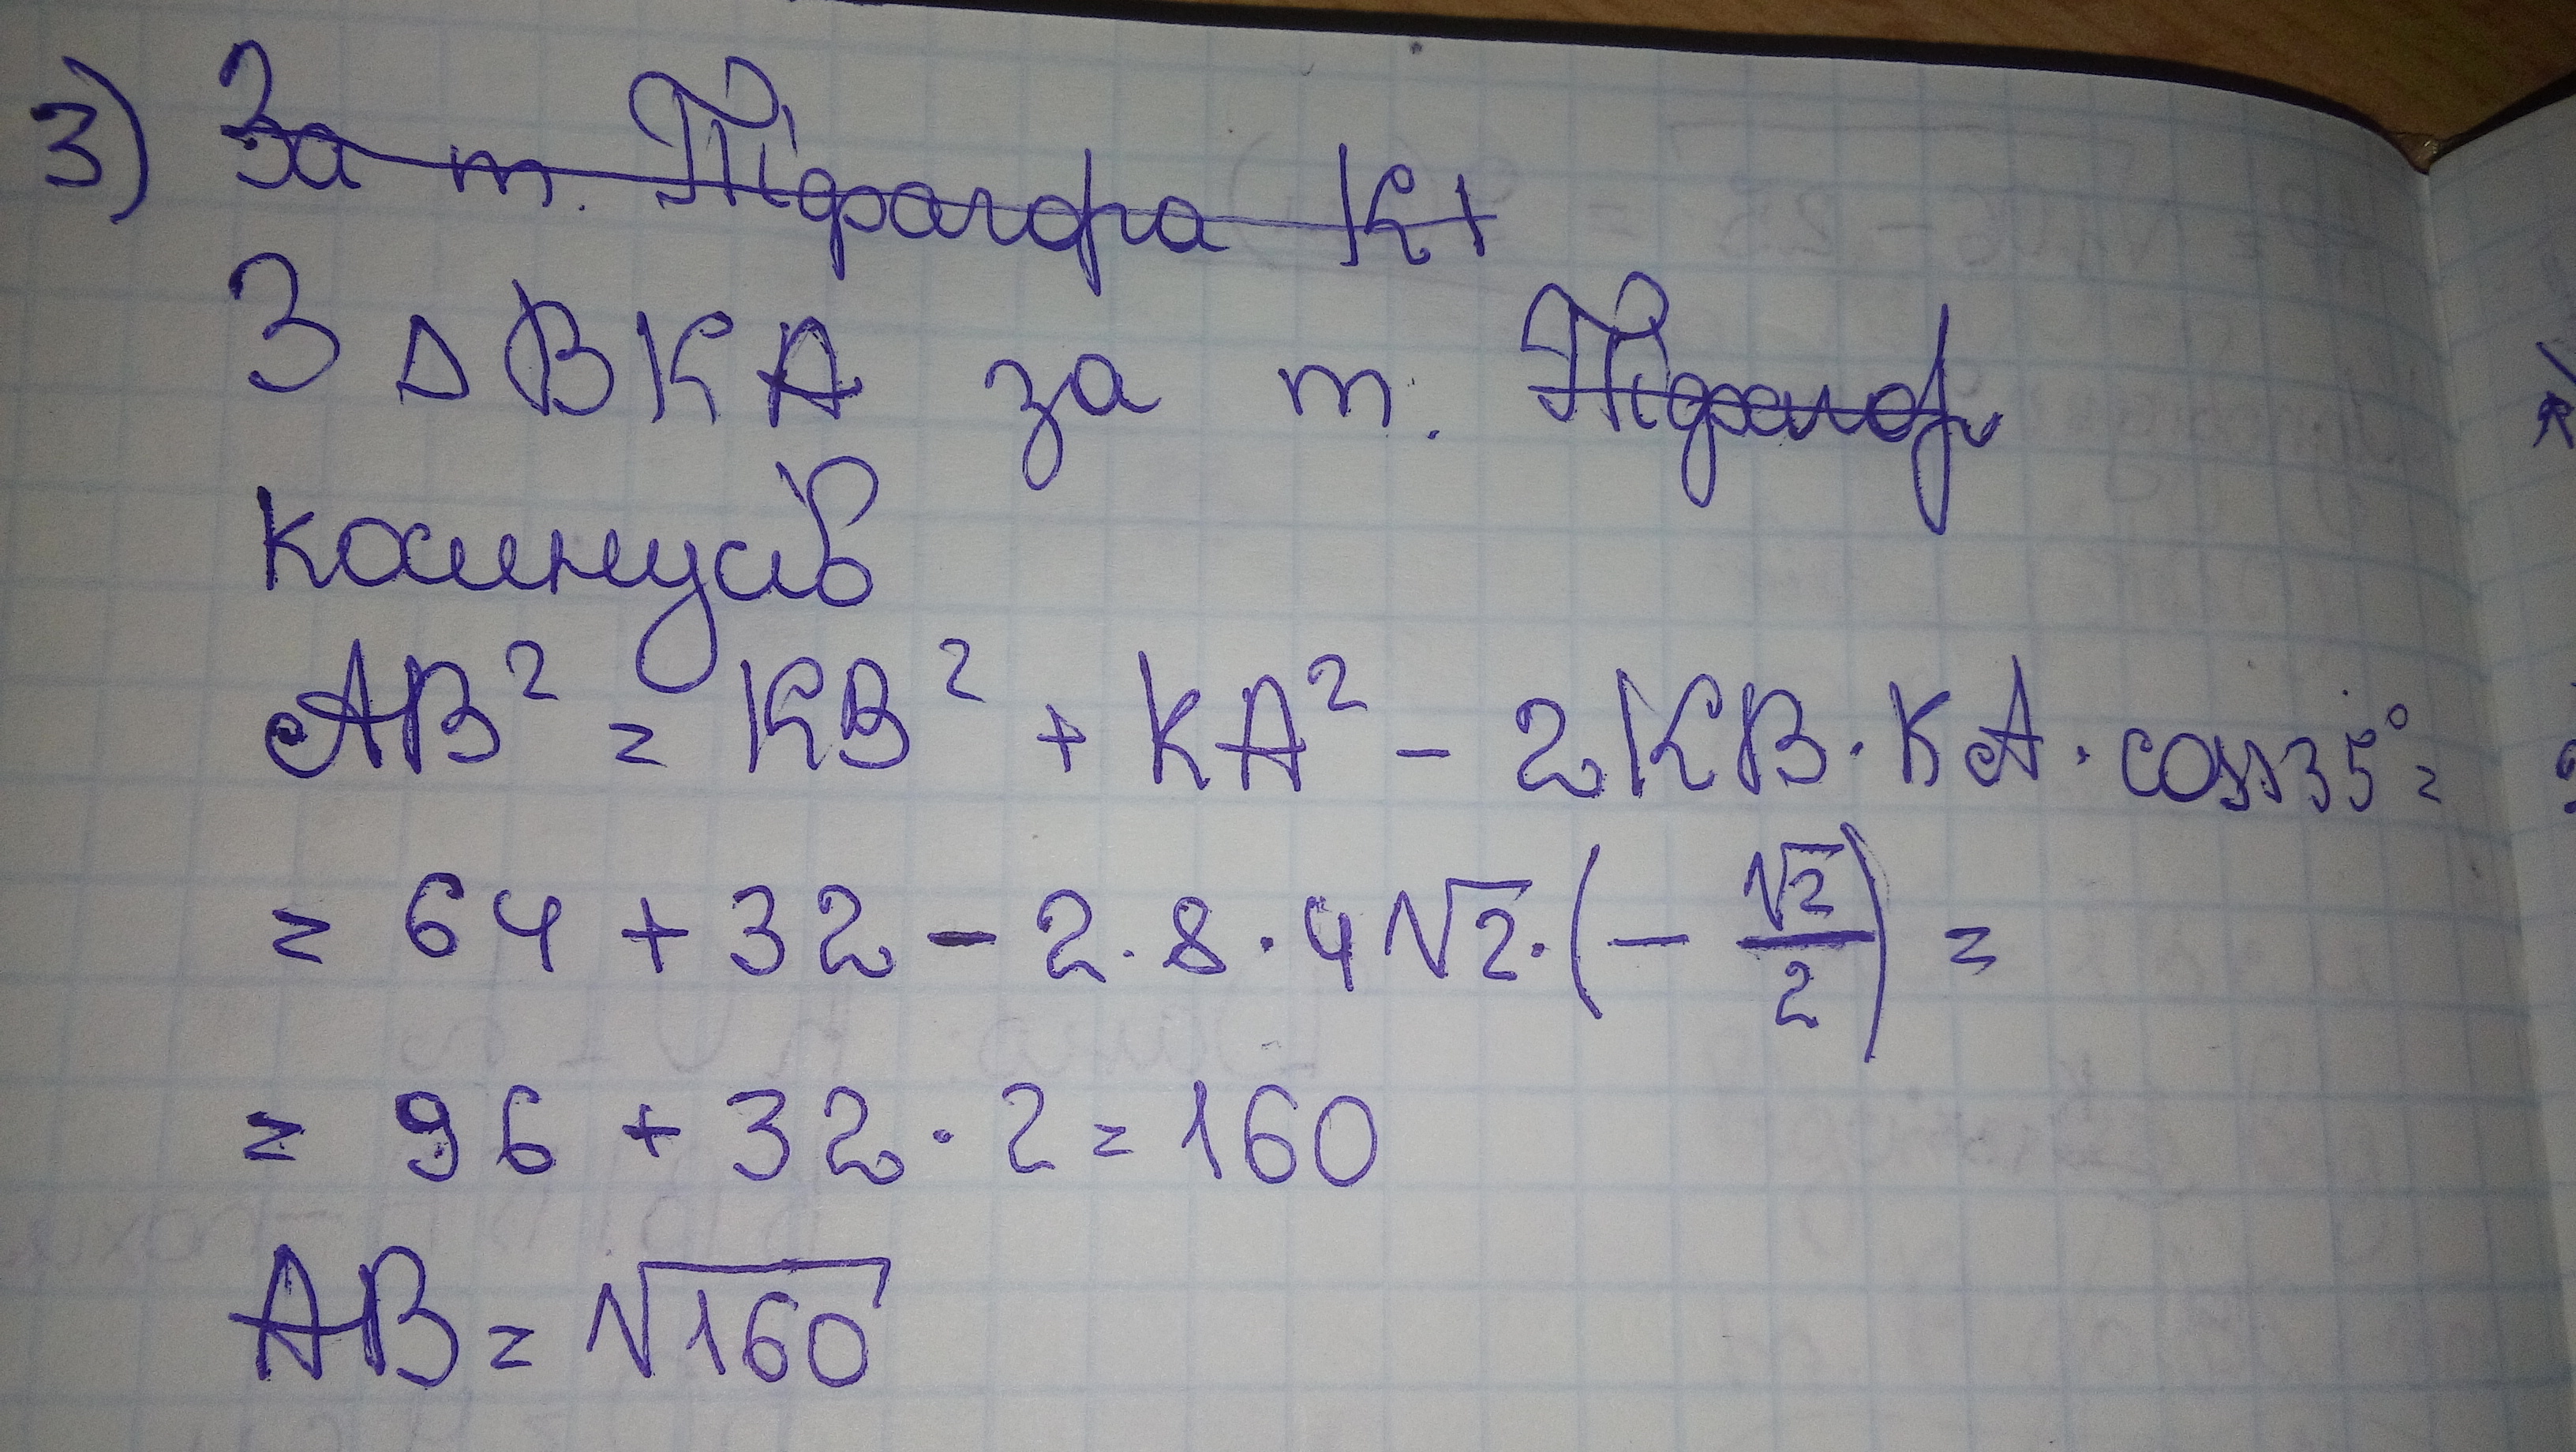 3) За т. Піфагора К
З △ВКА за т. Піфагор
косинусів
АВ² = КВ² + КА² - 2КВ · КА · cos135° =
= 64 + 32 - 2 · 8 · 4√2 · (- √2/2) =
= 96 + 32 · 2 = 160
АВ = √160